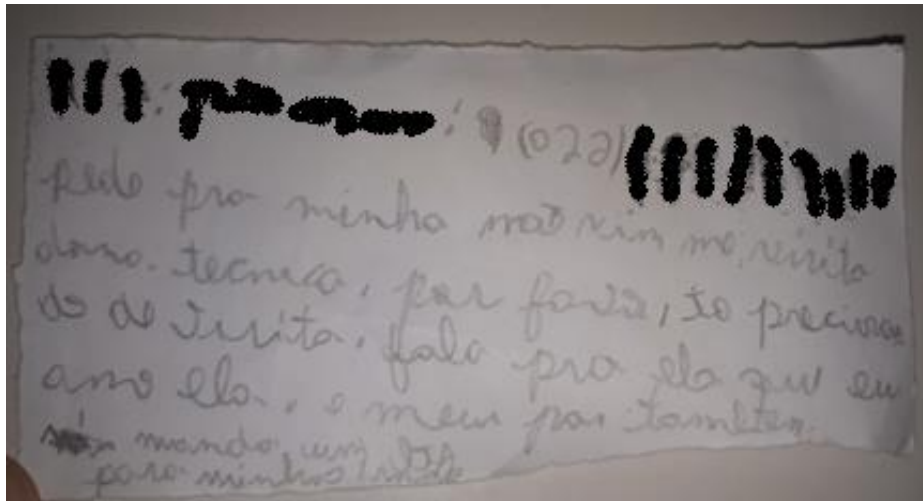 (022)
pede pra minha mãe vim me visita
dona. tecnica, por favor, to precisan
do de visita, fala pra ela que eu
amo ela, e meu pai também.
manda um
para minhas